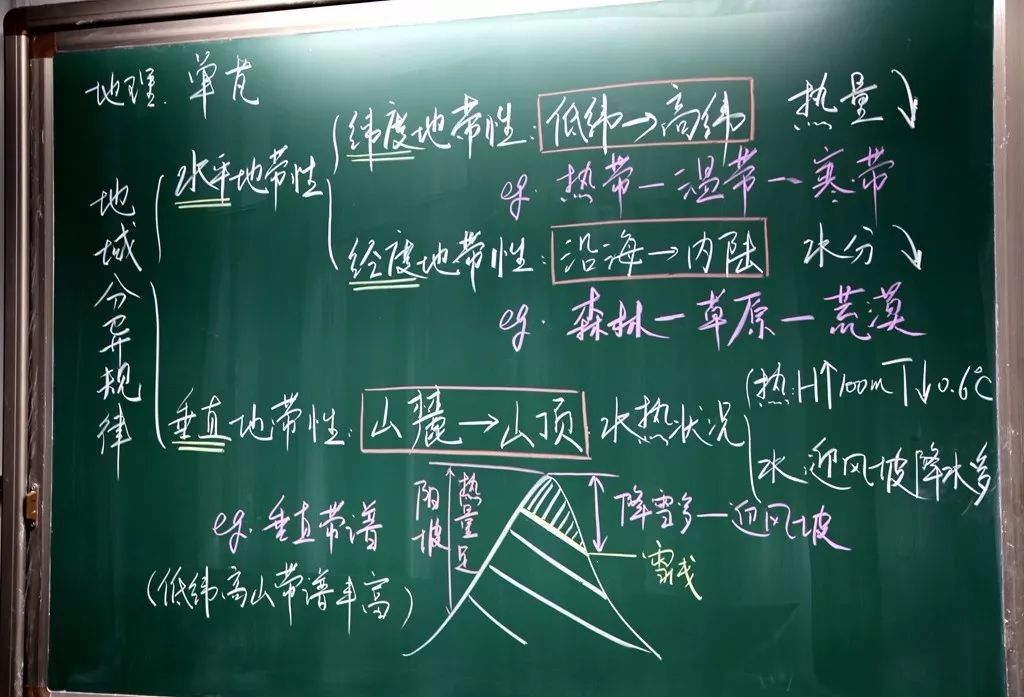 地理. 单芃
地域分异规律
水平地带性
纬度地带性: 低纬→高纬 热量↘
eg. 热带—温带—寒带
经度地带性: 沿海→内陆 水分↘
eg. 森林—草原—荒漠
垂直地带性: 山麓→山顶 水热状况
热:H↑100m T↓0.6℃
水 迎风坡降水多
eg. 垂直带谱
(低纬高山带谱丰富)
阳坡
热量足
降雪多—迎风坡
雪线